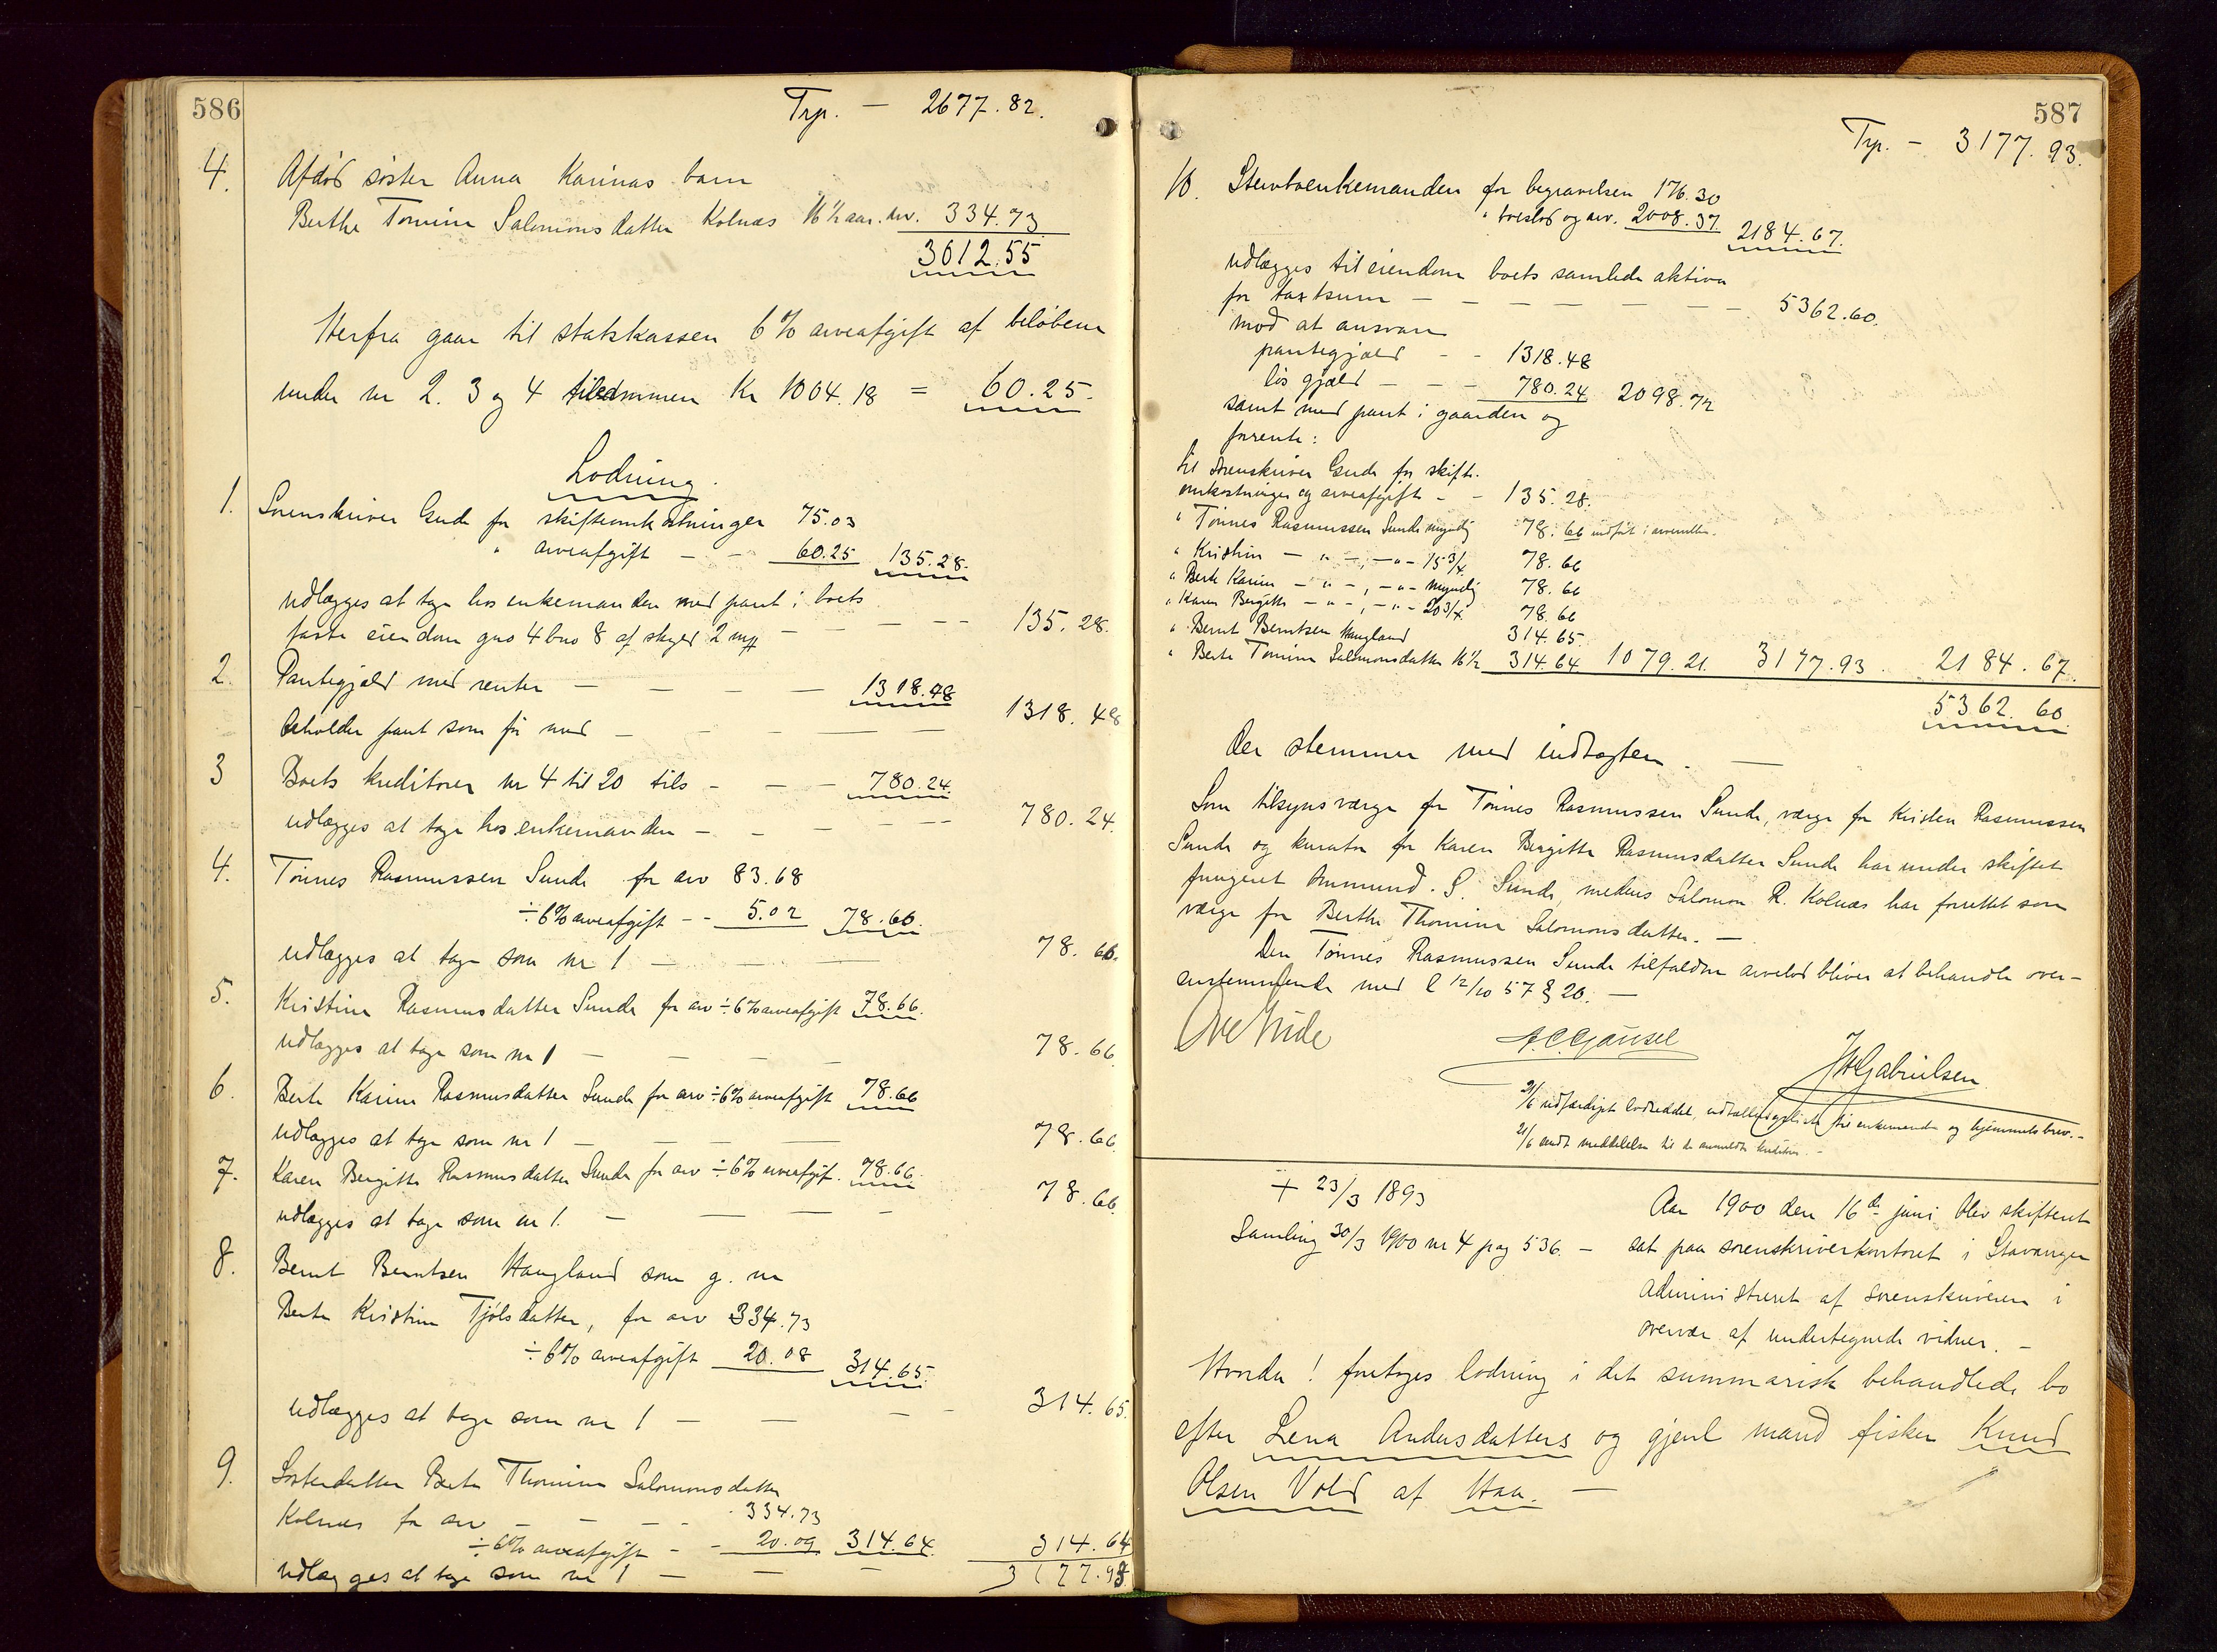 586
Trp. — 2677.82.
4. Afdød søster Anna Karinas barn
Berthe Tomine Salomonsdatter Kolnæs 16½ aar. arv. 334.73
3012.55
Herfra gaar til statskassen 6% arveafgift af beløbene
under nr 2. 3 og 4 tilsammen Kr 1004.18 = 60.25.
Lodning.
1. Sorenskriver Gude for skifteomkostninger 75.03
" arveafgift — 60.25 135.28.
udlægges at tage hos enkemanden med pant i boets
faste eiendom gno 4 bno 8 af skyld 2 mk — 135.28.
2. Pantegjæld med renter — 1318.48
beholder pant som før med — 1318.48
3 Boets kreditorer nr 4 til 20 tils — 780.24.
udlægges at tage hos enkemanden — 780.24.
4. Tønnes Rasmussen Sunde for arv 83.68
÷ 6% arveafgift — 5.02 78.66.
udlægges at tage som nr 1 — 78.66.
5. Kristine Rasmusdatter Sunde for arv ÷ 6% arveafgift 78.66.
udlægges at tage som nr 1 — 78.66
6. Berte Karine Rasmusdatter Sunde for arv ÷ 6% arveafgift 78.66
udlægges at tage som nr 1 — 78.66
7. Karen Bergitte Rasmusdatter Sunde for arv ÷ 6% arveafgif. 78.66.
udlægges at tage som nr 1. — 78.66
8. Bernt Berntsen Haugland som g. m
Berte Kristine Tjølsdatter, for arv 334.73
÷ 6% arveafgift 20.08 314.65.
udlægges at tage som nr 1 — 314.65.
9. Søsterdatter Berte Thomine Salomonsdatter
Kolnæs for arv — 334.73
÷ 6% arveafgift — 20.09 314.64.
udlægges at tage som nr 1 — 314.64
3177.93
587
Trp. — 3177.93.
10. Stervboenkemanden for begravelsen 176.30
" boeslod og arv. 2008.37. 2184.67.
udlægges til eiendom boets samlede aktiva
for taxtsum — 5362.60.
mod at ansvare
pantegjæld — 1318.48
løs gjæld — 780.24 2098.72
samt med pant i gaarden og
forrente:
til sorenskriver Gude for skifte-
omkostninger og arveafgift — 135.28.
" Tønnes Rasmussen Sunde myndig 78.66 indført i
" Kristine — " —, — " — 15 3/4 78.66
" Berte Karine — " —, — " — myndig 78.66
" Karen Bergitte — " —, — " — 20 3/4 78.66
" Bernt Berntsen Haugland 314.65
" Berte Tomine Salomonsdatter 16½ 314.64 1079.21. 3177.93. 2184.67.
5362.60.
Der stemmer med indtægten. —
Som tilsynsværge for Tønnes Rasmussen Sunde, værge for Kristen Rasmussen
Sunde og kurator for Karen Bergitte Rasmusdatter Sunde har under skiftet
fungeret Ommund. S. Sunde, medens Salomon R. Kolnæs har forrettet som
værge for Berthe Thomine Salomonsdatter. —
Den Tønnes Rasmussen Sunde tilfaldne arvelod bliver at behandle over-
ensstemmende med l 12/10 57 § 20. —
Ove Gude
J H Gabrielsen
21/6 udfærdiget lodseddel, til enkemanden og hjemmelsbrev. —
21/6 sendt meddelelse til de anmeldte kreditorer. —
+ 23/3 1893
Samling 30/3 1900 nr 4 pag 536. —
Aar 1900 den 16de juni blev skifteret
sat paa sorenskriverkontoret i Stavanger
administreret af sorenskriveren i
overvær af undertegnede vidner. —
Hvorda! foretoges lodning i det summarisk behandlede bo
efter Lena Andersdatters og gjenl mand fisker Knud
Olsen Vold af Haa. —